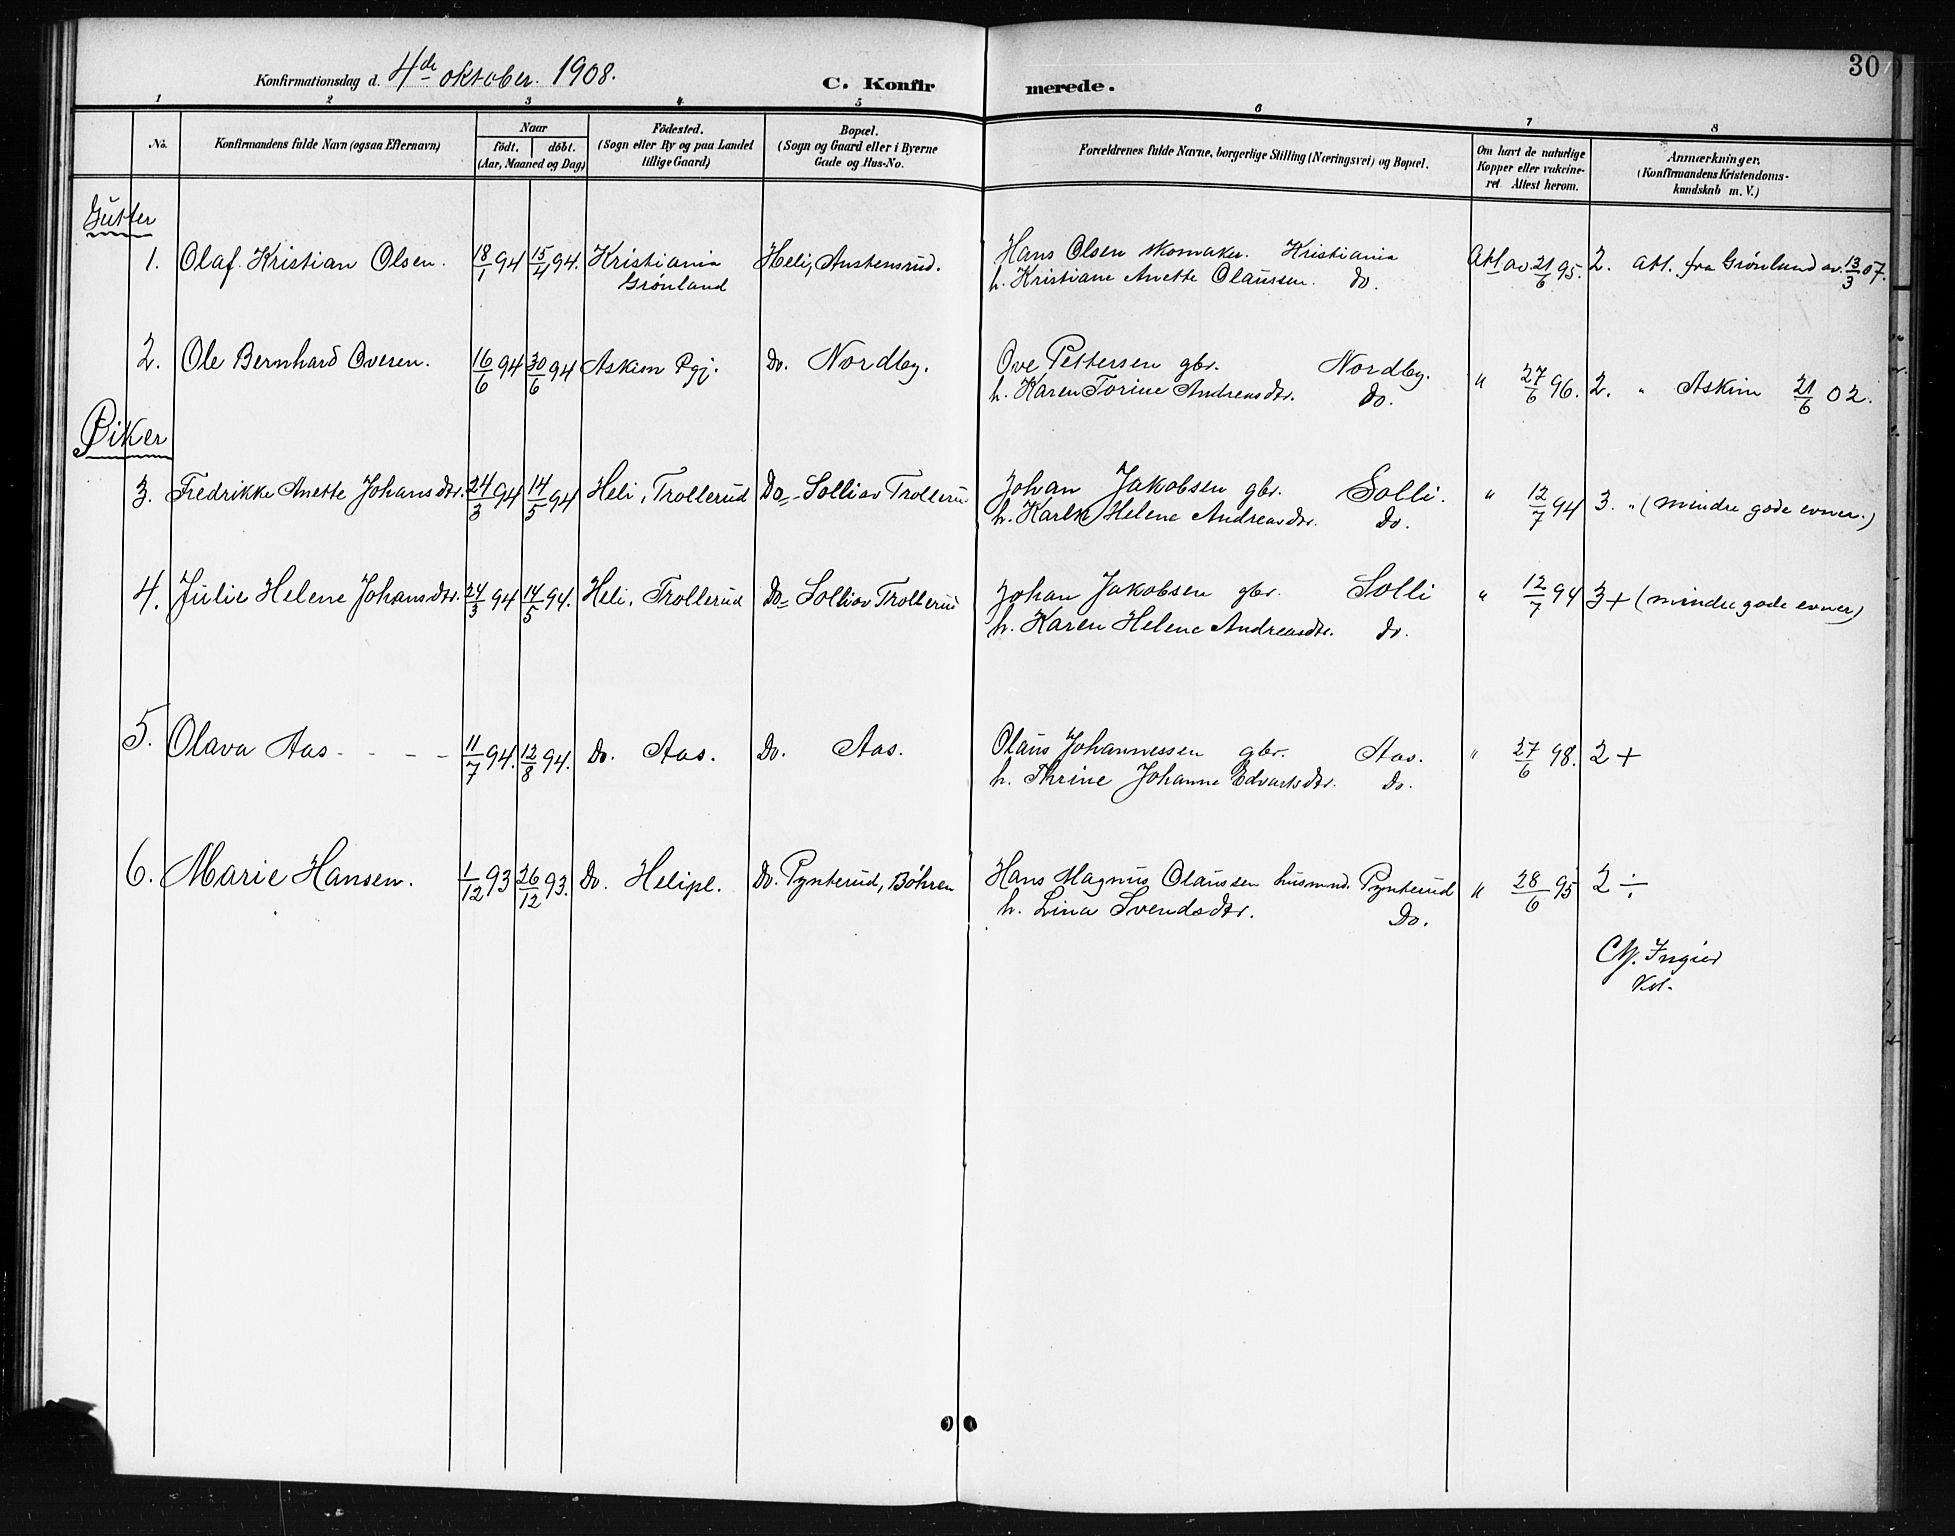 30
Konfirmationsdag d. 4de oktober 1908. C. Konfirmerede.
1 2 3 4 5 6 7 8
No. Konfirmandens fulde Navn (ogsaa Efternavn) Naar födt. döbt. (Aar, Maaned og Dag) Födested. (Sogn eller By og paa Landet tillige Gaard) Bopæl. (Sogn og Gaard eller i Byerne Gade og Hus-No. Forældrenes fulde Navne, borgerlige Stilling (Næringsvei) og Bopæl. Om havt de naturlige Kopper eller vakcineret Attest herom. Anmærkninger. (Konfirmandens Kristendomskundskab m. V.)
Gutter
1. Olaf Kristian Olsen. 18/1 94 15/4 94. Kristiania Grønland Heli, Austensrud. Hans Olsen skomaker. Kristiania Att av. 21/6 95. 2. att. fra Grønland av. 13/3 07.
h. Kristiane Anette Olaussen. do.
2. Ole Bernhard Overen. 16/6 94 30/6 94 Askim Pgj. Do. Nordby. Ove Pettersen gbr. Nordby. " 27/6 96. 2. " Askim 21/6 02.
h. Karen Torine Andreasdtr. Do.
Piker
3. Fredrikke Anette Johansdtr. 24/3 94 14/5 94 Heli, Trollerud Do - Solli av Trollerud Johan Jakobsen gbr. Solli. " 12/7 94 3. " (mindre gode evner.)
h. Karen Helene Andreasdtr. Do.
4. Julie Helene Johansdtr. 24/3 94 14/5 94. Heli, Trollerud Do - Solli av Trollerud Johan Jakobsen gbr. Solli " 12/7 94 3+ (mindre gode evner)
h. Karen Helene Andreasdtr. do.
5. Olava Aas - - - - 11/7 94. 12/8 94. Do. Aas. Do. Aas. Olaus Johannessen gbr. Aas. " 27/6 98. 2 +
h. Thrine Johanne Edvartsdtr. Do.
6. Marie Hansen. 1/12 93 26/12 93. Do. Helipl. Do. Pynterud, Böhren Hans Magnus Olaussen husmnd. Pynterud " 28/6 95 2 ÷
h. Lina Svendsdtr. Do.
Ingier